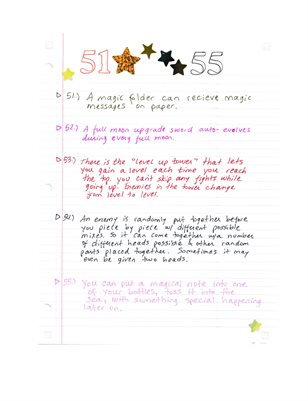 51 55
51.) A magic folder can recieve magic
messages on paper.
52.) A full moon upgrade sword auto-evolves
during every full moon.
53.) There is the "level up tower" that lets
you gain a level each time you reach
the top. you can't skip any fights while
going up. Enemies in the tower change
from level to level.
54) An enemy is randomly put together before
you piece by piece w/ different possible
mixes. So it can come together w/a number
of different heads possible & other random
parts placed together. Sometimes it may
even be given two heads.
55.) You can put a magical note into one
of your bottles, toss it into the
Sea, with something special happening
later on.